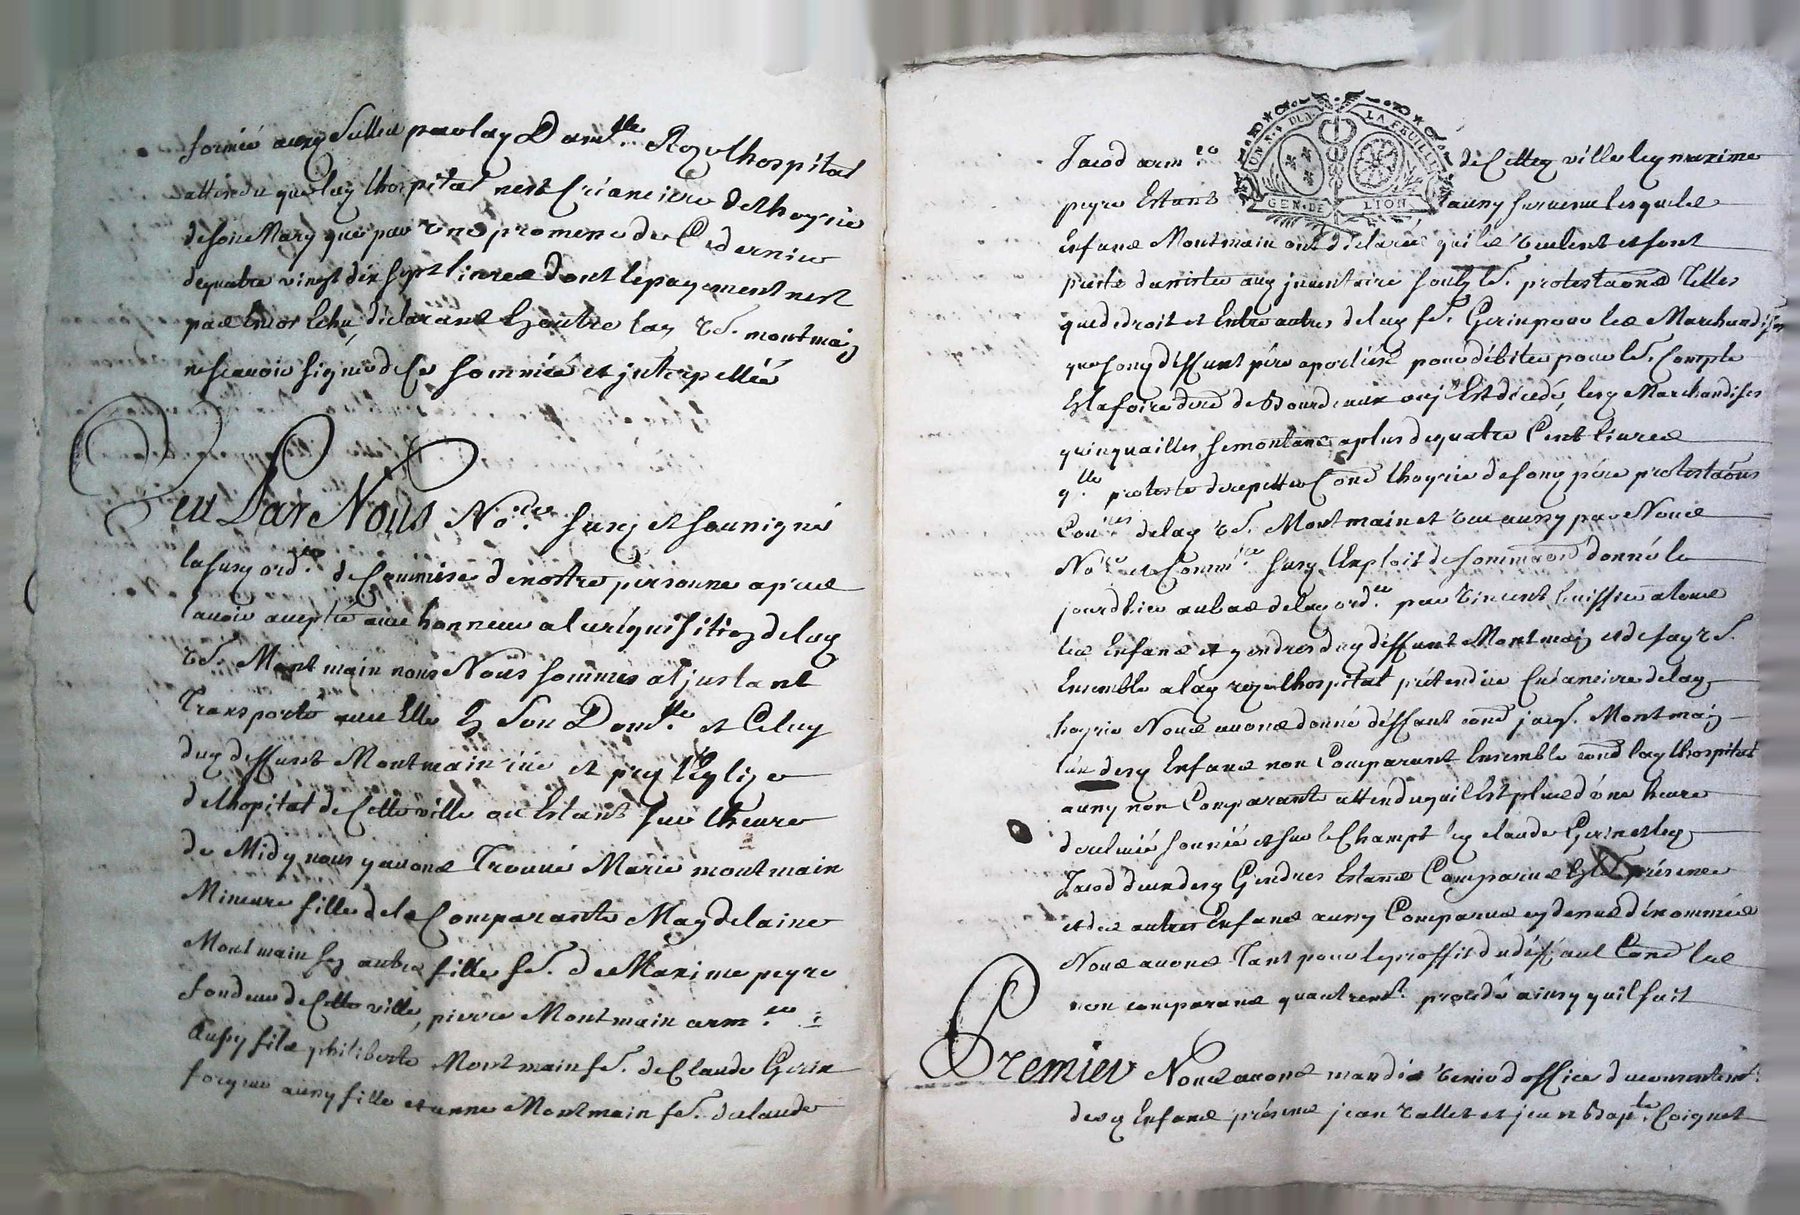 formé aussy Sullied par lay Dam.lle Roze lhospital
attendu que lay lhospital nest Créanciere de lhoyrie
de son Mary que par une promesse de Ce dernier
de quatre vingt dix sept livres dont le payement nest
pas Encor Echu, déclarant En outre lay vé. montmain
ne scavoir signer de Ce sommée et interpellée
Veu Par Nous No.re susy et soussigné
la susy ord.ce de Commise de nostre personne apres
lavoir acceptée avec honneur a la réquisition de lay
vé. Montmain nous Nous sommes a linstant
Transporté avec Elle En Son Dom.lle et Celuy
duy deffunt Montmain size et prez l'Eglize
de lhopital de Cette ville ou Estant sur lheure
de Midy nous y avons Trouvé Marie montmain
Mineure fille de la Comparante Magdelaine
Montmain sa autre fille fé. de Maxime peyre
fondeur de Cette ville, pierre Montmain arm.er
Aussy fils philiberte Montmain fé. de Claude Gerin
forgeur aussy fille et anne Montmain fé. de laude
Jacod arm.er de Cette ville ley maxime
UN S.3 DEN. LA FEUILLE
GEN. DE LION
peyre Estant aussy survenu lesquels
Enfans Montmain ont déclaré quils veulent et sont
prets d'assister aux inventaire soubz les protestaons Telles
que de droit et Entre autres de lay fé. Gerin pour les Marchandises
que sony deffunt père a portées pour débiter pour le Compte
Et la foire de de Bourdeaux ou jl Est décedé, lesy Marchandises
quinquailles se montant a plus de quatre Cent livres
q.lle proteste de repetter Cont lhoyrie de sony père protestaons
Con.res de lay vé. Montmain et veu aussy par Nous
No.re et Comm.re susy lExploit de sommaon donné le
jourdhier au bas de lay ord.ce par Vincent huissier a tous
les Enfans et gendres duy deffunt Montmain et de say vé.
Ensemble a lay roze lhospital prétendue Créanciere de lay
hoyrie Nous avons donné déffaut cont Montmain
lun desy Enfans non Comparant Ensemble cont lay lhospital
aussy non Comparante attendu quil Est plus d'une heure
de relevée sonnée et sur le Champt ley claude Gerin et ley
Jacod deux desy Gendres Estans Comparus En présence
et des autres Enfans aussy Comparus cy dessus dénommés
Nous avons Tant pour le proffit du déffaut Cont les
non comparans quautrem.t procédé ainsy quil suit
Premier Nous avons mandé venir d'office du consentem.t
desy Enfans présens jean vallet et jean Bap.te Coignet